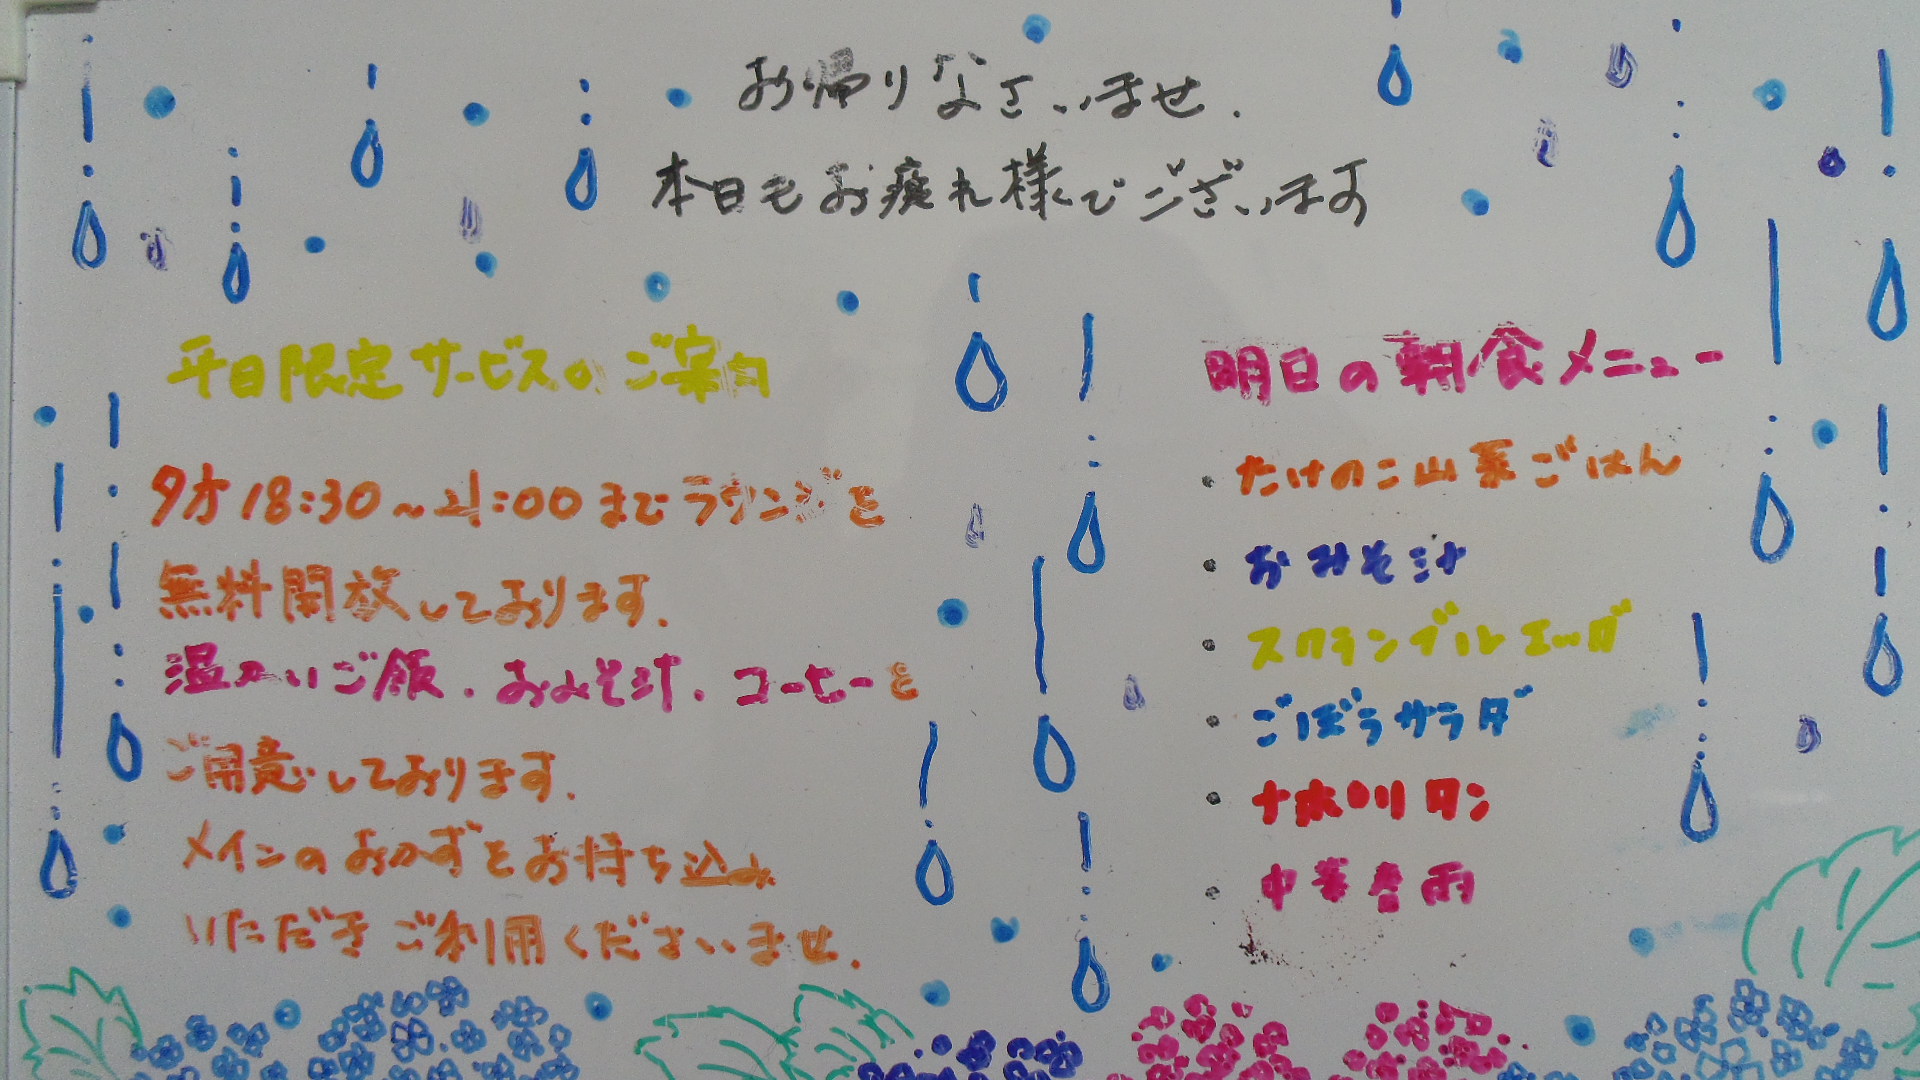 お帰りなさいませ.
本日もお疲れ様でございます
平日限定サービスのご案内
夕方18:30~21:00までラウンジを
無料開放しております.
温かいご飯.おみそ汁.コーヒーを
ご用意しております.
メインのおかずをお持ち込み
いただきご利用くださいませ.
明日の朝食メニュー
・たけのこ山菜ごはん
・おみそ汁
・スクランブルエッグ
・ごぼうサラダ
・ナポリタン
・中華春雨